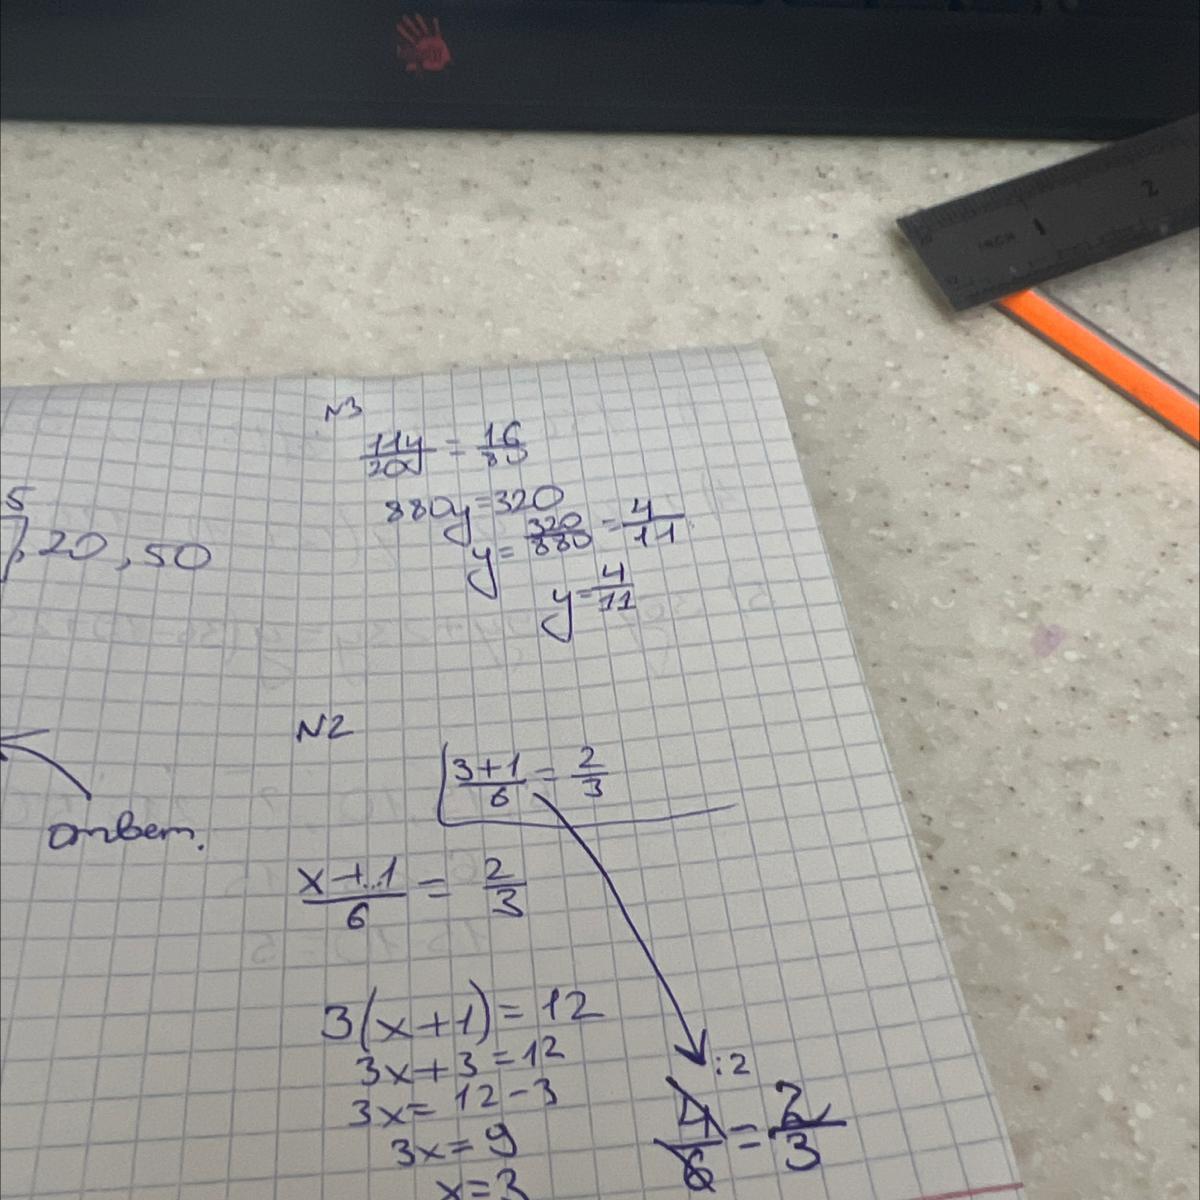 1
2
INCH
N3
11y/20 = 16/80
880y=320
y= 320/880 = 4/11
y= 4/11
5
7, 20, 50
N2
3+1/6 = 2/3
ответ.
x+1/6 = 2/3
3(x+1)=12
3x+3=12
3x= 12-3
3x=9
x=3
:2
4/6 = 2/3